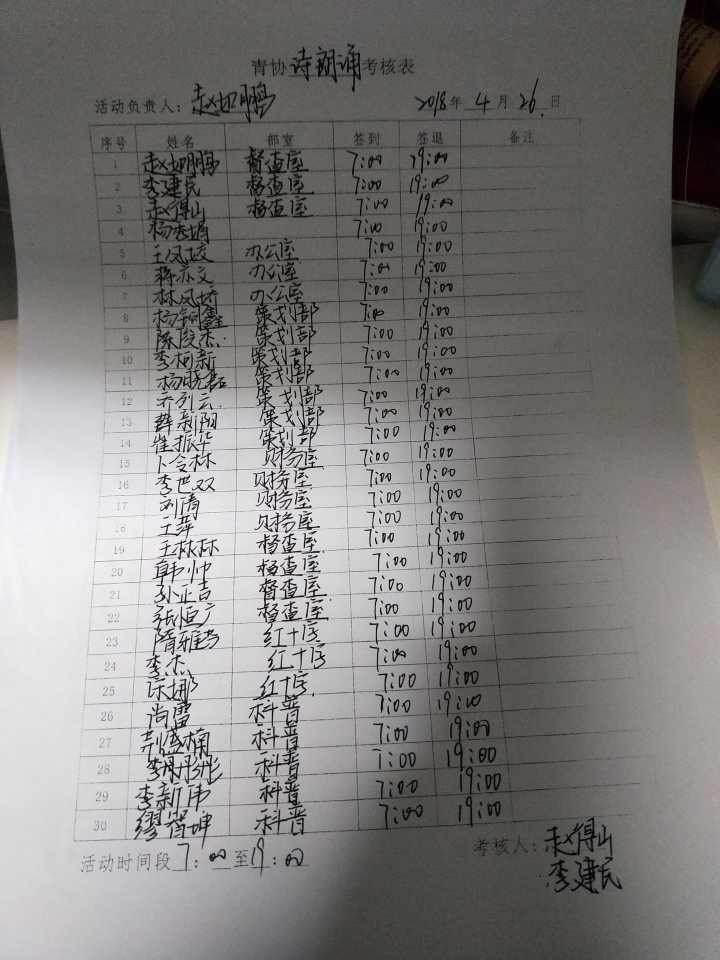 青协诗朗诵考核表
活动负责人：赵如鹏 2018年4月26日
序号 姓名 部室 签到 签退 备注
1 赵如鹏 督查室 7:00 19:00
2 李建民 督查室 7:00 19:00
3 赵得山 督查室 7:00 19:00
4 杨 7:00 19:00
5 王凤姣 办公室 7:00 19:00
6 蒋亦文 办公室 7:00 19:00
7 林凤娇 办公室 7:00 19:00
8 杨 鑫 策划部 7:00 19:00
9 陈俊杰 策划部 7:00 19:00
10 李柯新 策划部 7:00 19:00
11 杨晓磊 策划部 7:00 19:00
12 策划部 7:00 19:00
13 薛新阳 策划部 7:00 19:00
14 崔振华 策划部 7:00 19:00
15 卜令林 财务室 7:00 19:00
16 李世双 财务室 7:00 19:00
17 刘清 财务室 7:00 19:00
18 王萍 财务室 7:00 19:00
19 王林林 督查室 7:00 19:00
20 韩帅 督查室 7:00 19:00
21 孙正吉 督查室 7:00 19:00
22 张恒广 督查室 7:00 19:00
23 隋雅 红十字 7:00 19:00
24 李杰 红十字 7:00 19:00
25 娜 红十字 7:00 19:00
26 尚雪 科普 7:00 19:00
27 荆盛楠 科普 7:00 19:00
28 李丹彤 科普 7:00 19:00
29 李新伟 科普 7:00 19:00
30 缪 坤 科普 7:00 19:00
活动时间段 7：00 至 19：00 考核人：赵得山
李建民